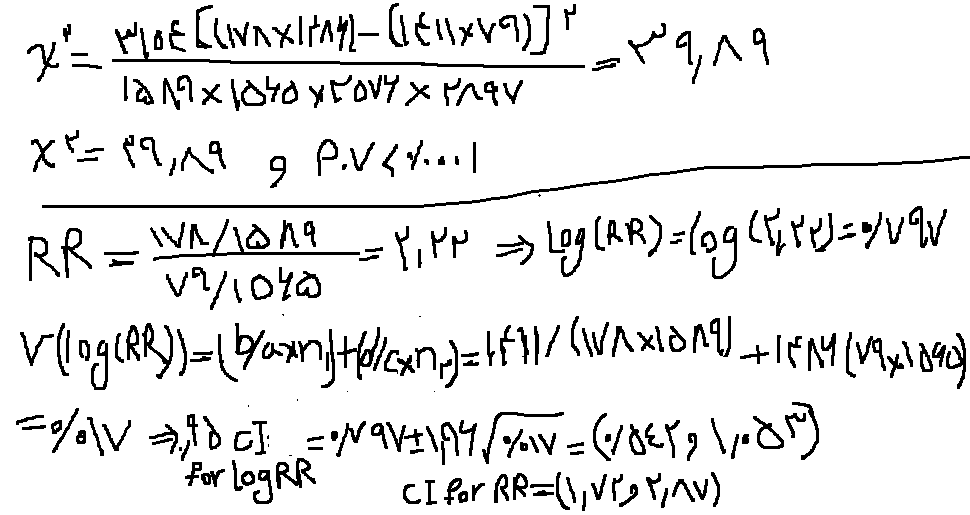 χ² = ۳۱۵٤[(۱۷۸×۱۴۸۶)-(۱٤۱۱×۷۹)]² = ۳۹,۸۹
۱۵۸۹×۱۵۶۵×۲۵۷۶×۲۸۹۷
χ² = ۳۹,۸۹ و P.V < ۰/۰۰۰۱
RR = ۱۷۸/۱۵۸۹ = ۲,۲۲ ⇒ Log(RR) = log(۲,۲۲) = ۰/۷۹۷
۷۹/۱۵۶۵
V(log(RR)) = (b/a×n₁)+(d/c×n₂) = ۱۴۱۱/(۱۷۸×۱۵۸۹) + ۱۴۸۶(۷۹×۱۵۶۵)
= ۰/۰۱۷ ⇒ ,۹۵ CI for logRR = ۰/۷۹۷±۱,۹۶√۰/۰۱۷ = (۰/۵٤۲ و ۱,۰۵۳)
CI for RR = (۱,۷۲ و ۲,۸۷)